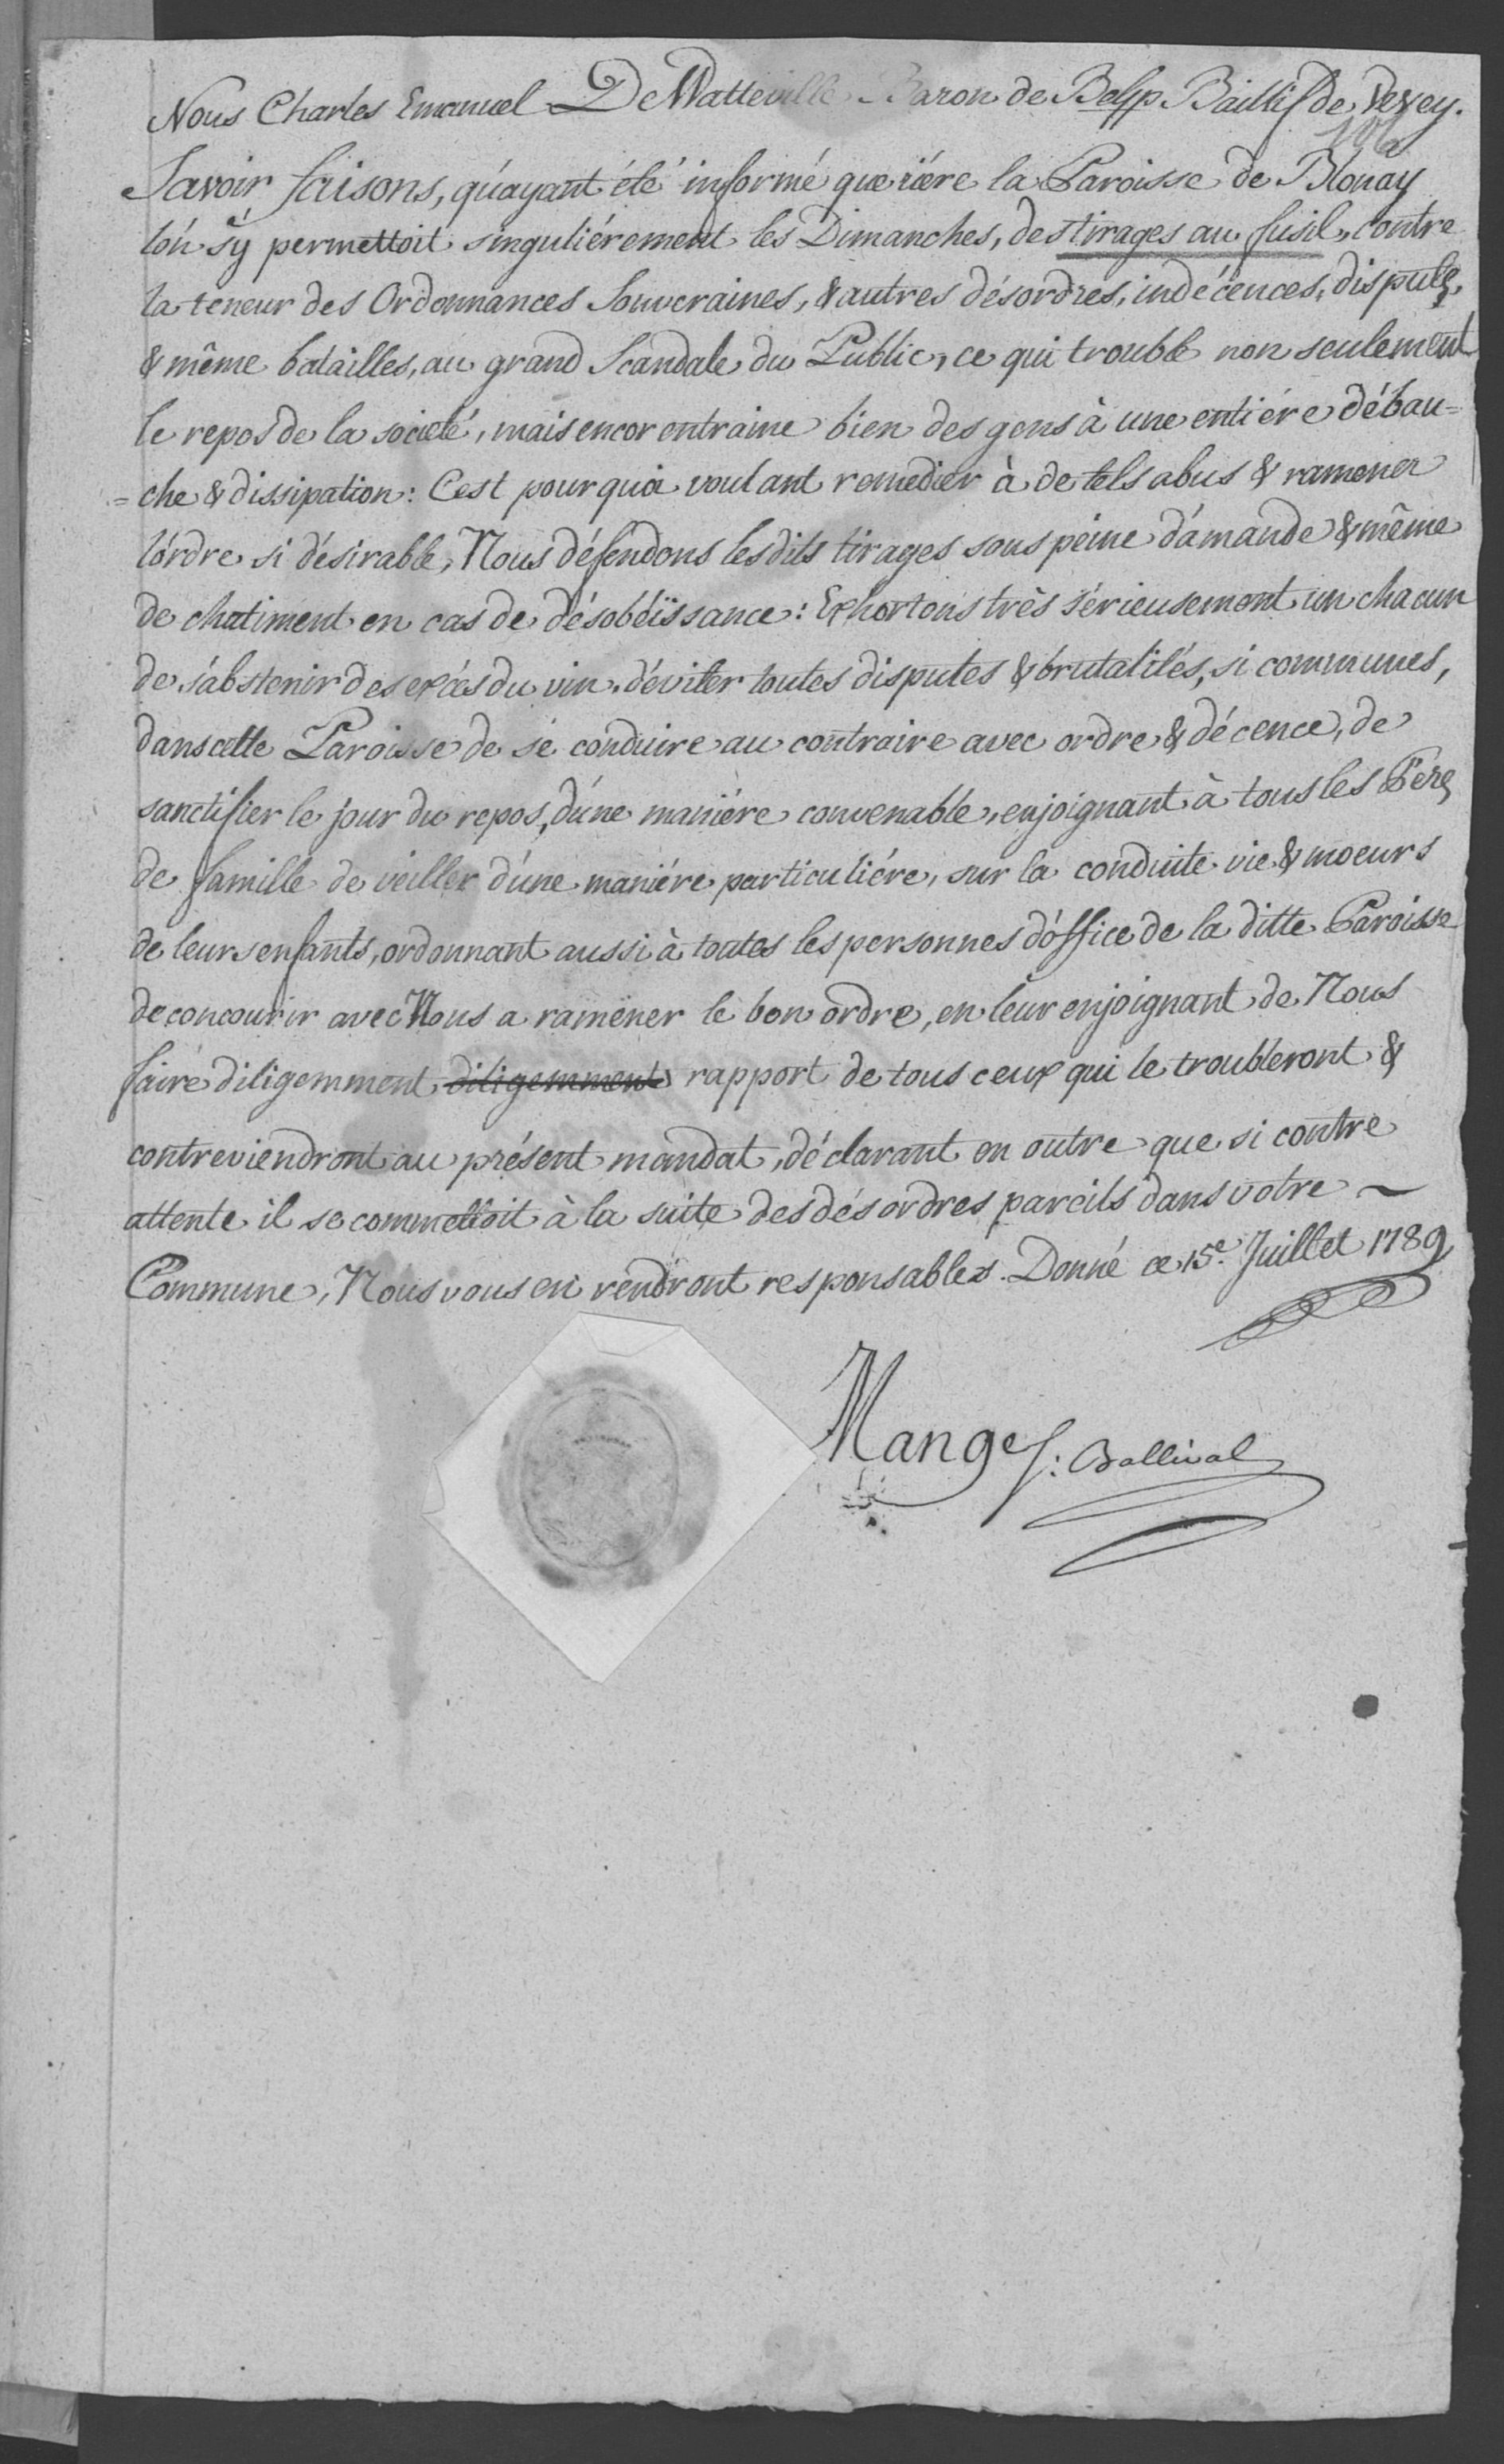 Nous Charles Emanuel De Watteville Baron de Belp Baillif de Vevey.
Savoir faisons, qu'ayant été informé que riére la Paroisse de Blonay
l'on s'y permettoit singuliérement les Dimanches, des tirages au fusil, contre
la teneur des Ordonnances Souveraines, & autres désordres, indécences, disputes,
& même batailles, au grand Scandale du Public, ce qui trouble non seulement
le repos de la societé, mais encor entraine bien des gens à une entiére débau=
=che & dissipation: C'est pourquoi voulant remedier à de tels abus & ramener
l'ordre si désirable, Nous défendons lesdits tirages sous peine d'amande & même
de chatiment en cas de désobéïssance: Exhortons très sérieusement un chacun
de s'abstenir des excès du vin, d'éviter toutes disputes & brutalités, si communes,
dans cette Paroisse de se conduire au contraire avec ordre & décence, de
sanctifier le jour du repos, d'une maniére convenable, enjoignant à tous les Péres
de famille de veiller d'une maniére particuliére, sur la conduite vie & moeurs
de leurs enfants, ordonnant aussi à toutes les personnes d'office de la ditte Paroisse
de concourir avec Nous a ramener le bon ordre, en leur enjoignant de Nous
faire diligemment diligemment rapport de tous ceux qui le troubleront &
contreviendront au présent mandat, déclarant en outre que si contre
attente il se commettoit à la suite des désordres pareils dans votre
Commune, Nous vous en rendront responsables. Donné ce 15e. Juillet 1789
Mange S: Ballival